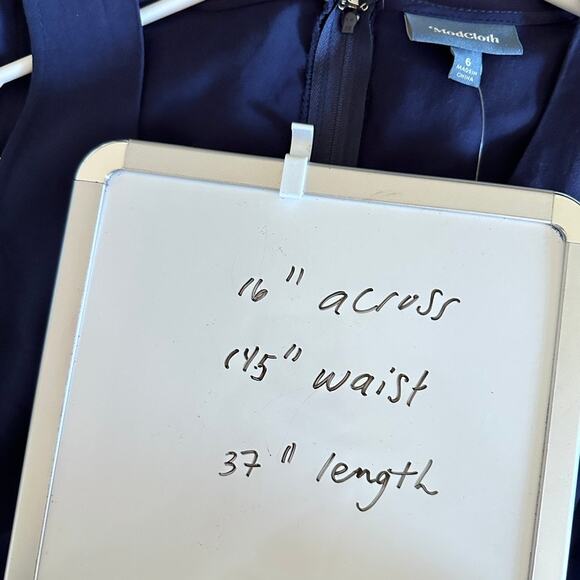 ModCloth
6
MADE IN
CHINA
16" across
14.5" waist
37" length